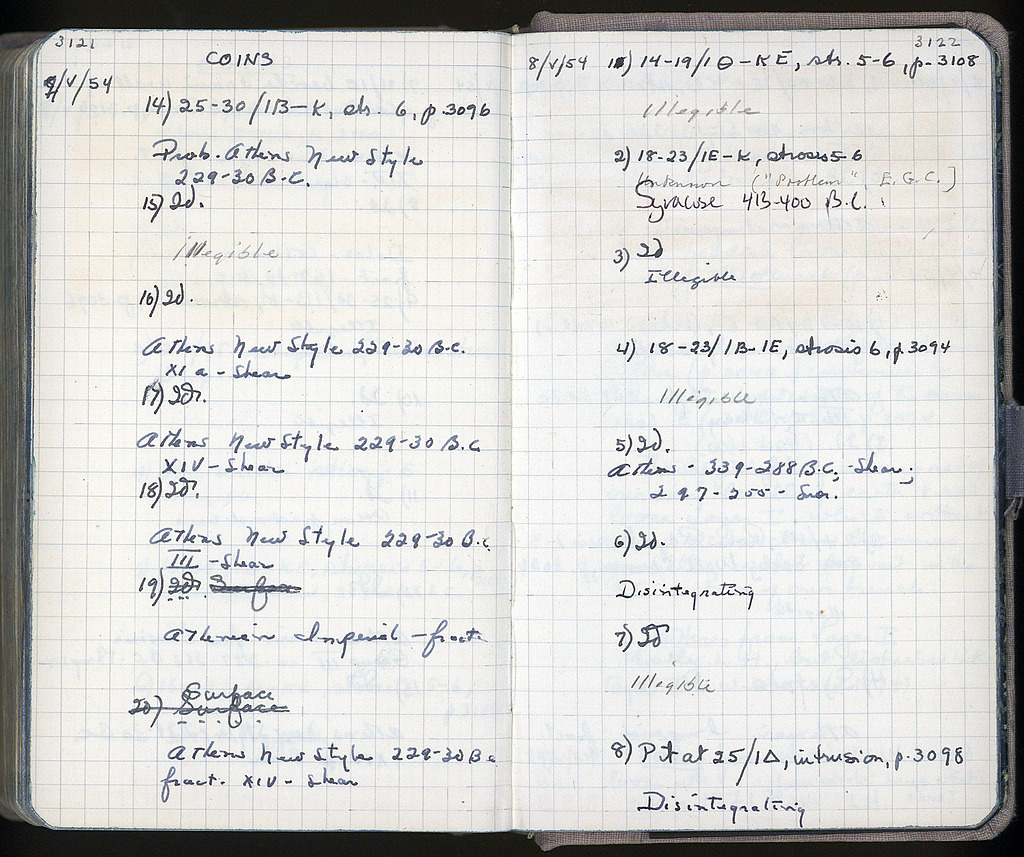 3121
COINS
9/V/54
14) 25-30/1B-K, str. 6, p. 3096
Prob. Athens New Style
229-30 B.C.
15) Id.
Illegible
16) Id.
Athens New Style 229-30 B.C.
XI a - Shear
17) Id.
Athens New Style 229-30 B.C.
XIV - Shear
18) Id.
Athens New Style 229-30 B.C.
III - Shear
19) Id. Surface
Athenian Imperial - fract.
Surface
20) Surface
Athens New Style 229-30 B.C.
fract. XIV - Shear
3122
8/V/54 1) 14-19/1Θ-KE, strs. 5-6, p. 3108
Illegible
2) 18-23/1E-K, strosis 5-6
Unknown ("Problem" E.G.C.]
Syracuse 413-400 B.C.
3) Id
Illegible
4) 18-23/1B-1E, strosis 6, p. 3094
Illegible
5) Id.
Athens - 339-288 B.C. - Shear;
297-255 - Svor.
6) Id.
Disintegrating
7) Id
Illegible
8) Pit at 25/1Δ, intrusion, p. 3098
Disintegrating